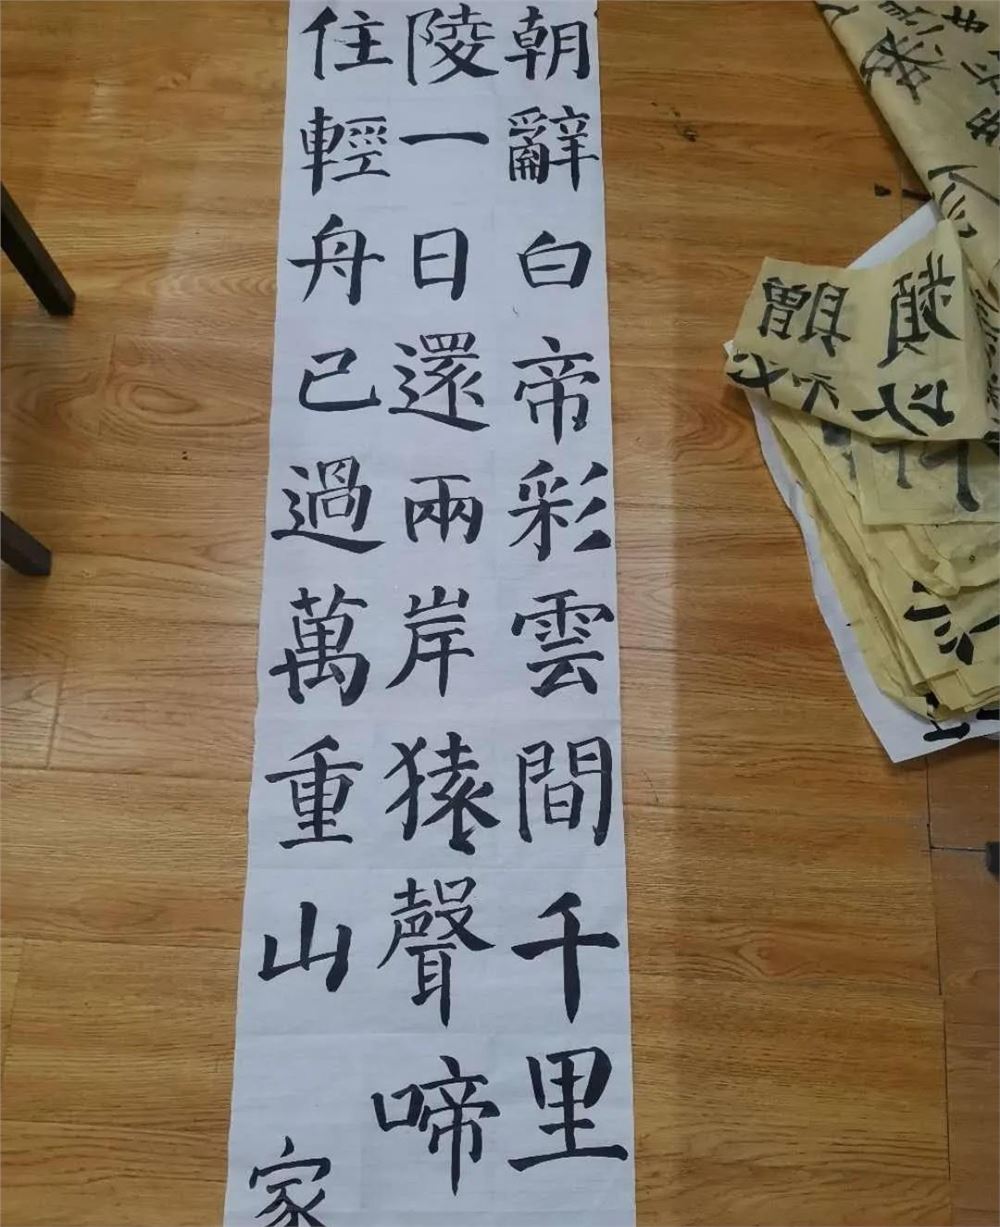 朝辭白帝彩雲間千里
陵一日還兩岸猿聲啼
住輕舟已過萬重山
家
贈
頻
以